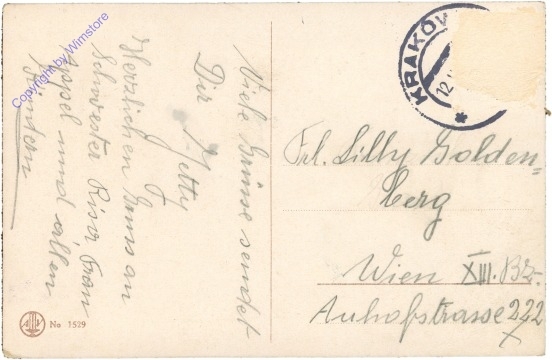 Viele Grüsse sendet
Dir Hetty
Herzlichen Gruss an
Schwester Frau
Appel und allen
KRAKÓW
12
Frl. Lilly Golden-
berg
Wien XIII. Bz.
Auhofstrasse 222
No 1529
Copyright by Wimstore